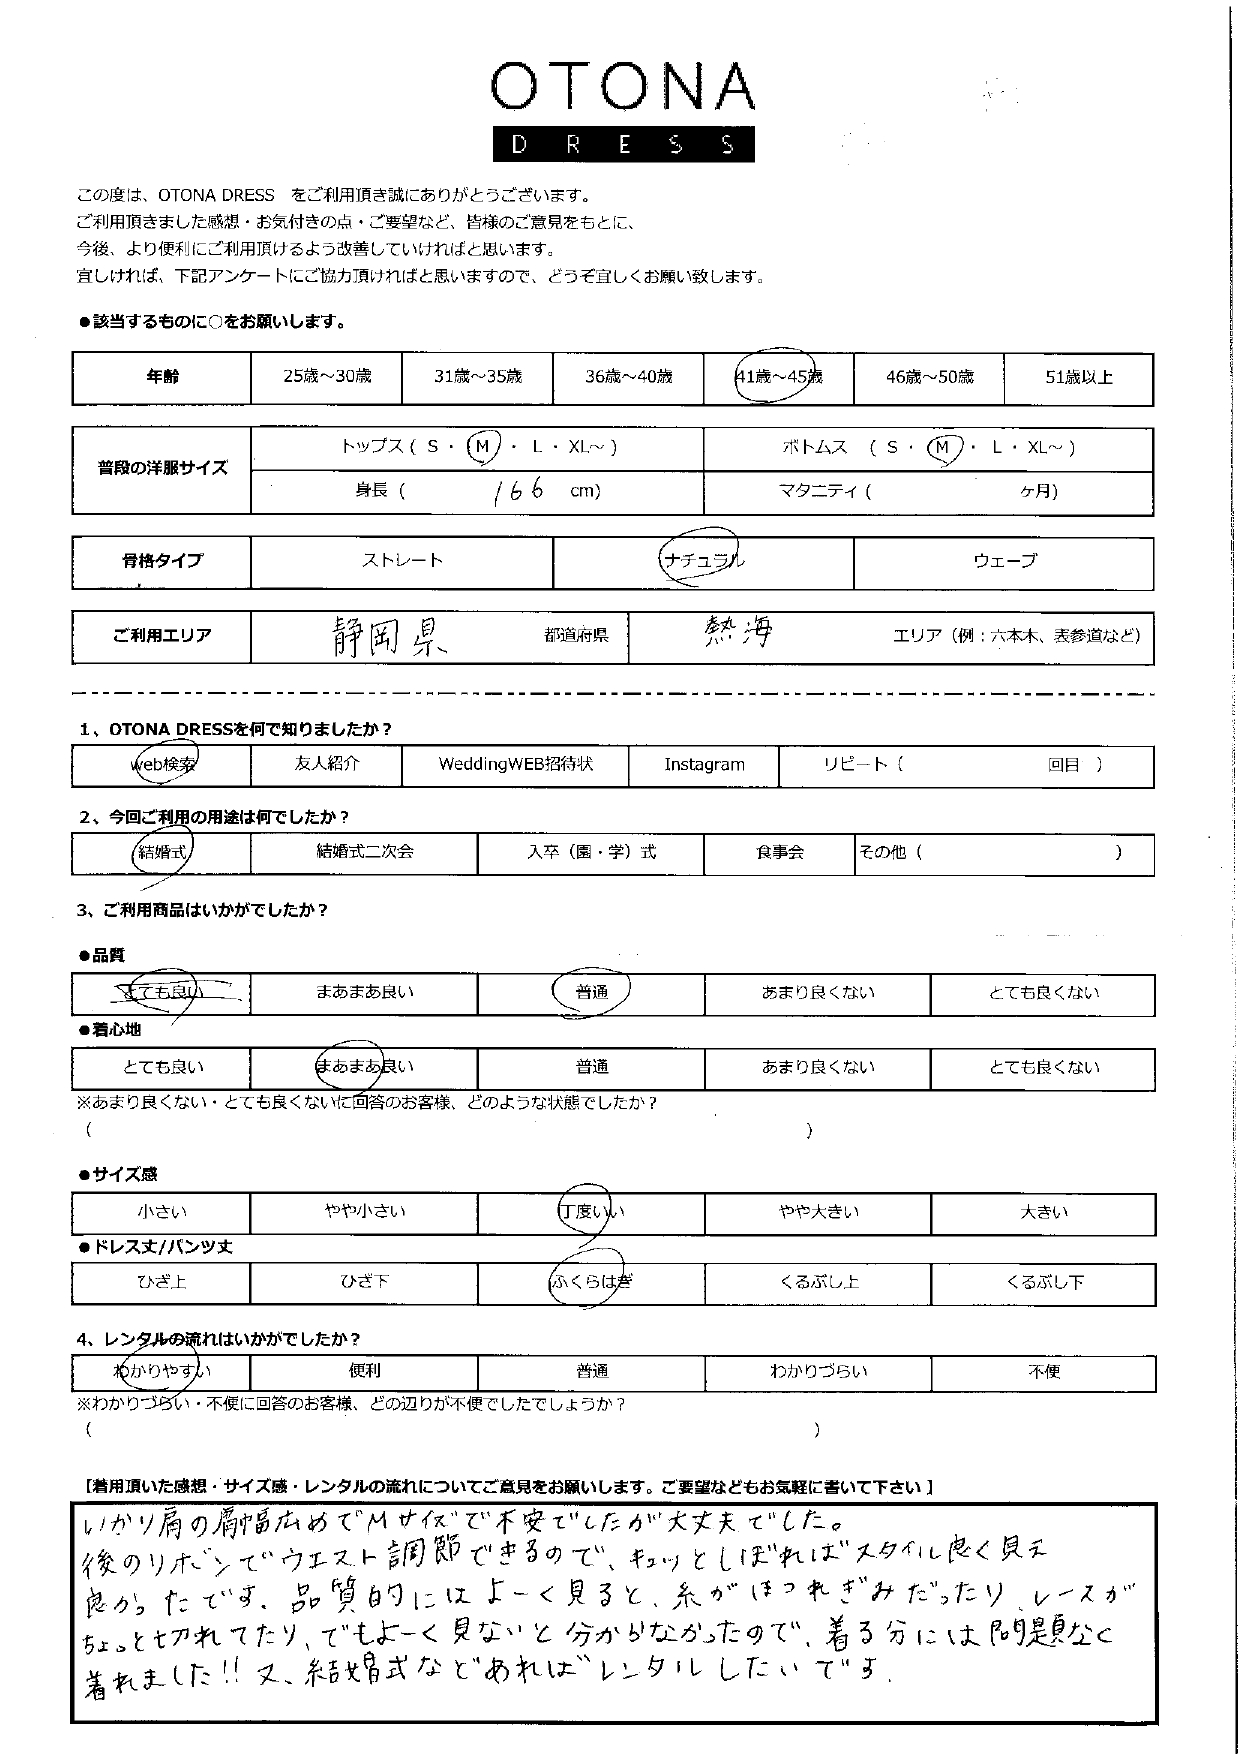 OTONA
DRESS
この度は、OTONA DRESS　をご利用頂き誠にありがとうございます。
ご利用頂きました感想・お気付きの点・ご要望など、皆様のご意見をもとに、
今後、より便利にご利用頂けるよう改善していければと思います。
宜しければ、下記アンケートにご協力頂ければと思いますので、どうぞ宜しくお願い致します。
●該当するものに○をお願いします。
年齢 25歳～30歳 31歳～35歳 36歳～40歳 41歳～45歳 46歳～50歳 51歳以上
普段の洋服サイズ トップス ( S ・ M ・ L ・ XL～ ) ボトムス ( S ・ M ・ L ・ XL～ )
身長 ( 166 cm) マタニティ ( ヶ月)
骨格タイプ ストレート ナチュラル ウェーブ
ご利用エリア 静岡県 都道府県 熱海 エリア（例：六本木、表参道など）
1、OTONA DRESSを何で知りましたか？
web検索 友人紹介 WeddingWEB招待状 Instagram リピート（ 回目 ）
2、今回ご利用の用途は何でしたか？
結婚式 結婚式二次会 入卒（園・学）式 食事会 その他（ ）
3、ご利用商品はいかがでしたか？
●品質
とても良い まあまあ良い 普通 あまり良くない とても良くない
●着心地
とても良い まあまあ良い 普通 あまり良くない とても良くない
※あまり良くない・とても良くないに回答のお客様、どのような状態でしたか？
（ ）
●サイズ感
小さい やや小さい 丁度いい やや大きい 大きい
●ドレス丈/パンツ丈
ひざ上 ひざ下 ふくらはぎ くるぶし上 くるぶし下
4、レンタルの流れはいかがでしたか？
わかりやすい 便利 普通 わかりづらい 不便
※わかりづらい・不便に回答のお客様、どの辺りが不便でしたでしょうか？
（ ）
【着用頂いた感想・サイズ感・レンタルの流れについてご意見をお願いします。ご要望などもお気軽に書いて下さい】
いかり肩の肩幅広めでMサイズで不安でしたが大丈夫でした。
後のリボンでウエスト調節できるので、キュッとしぼればスタイル良く見え
良かったです。品質的にはよーく見ると、糸がほつれぎみだったり、レースが
ちょっと切れてたり、でもよーく見ないと分からなかったので、着る分には問題なく
着れました!! 又、結婚式などあればレンタルしたいです。